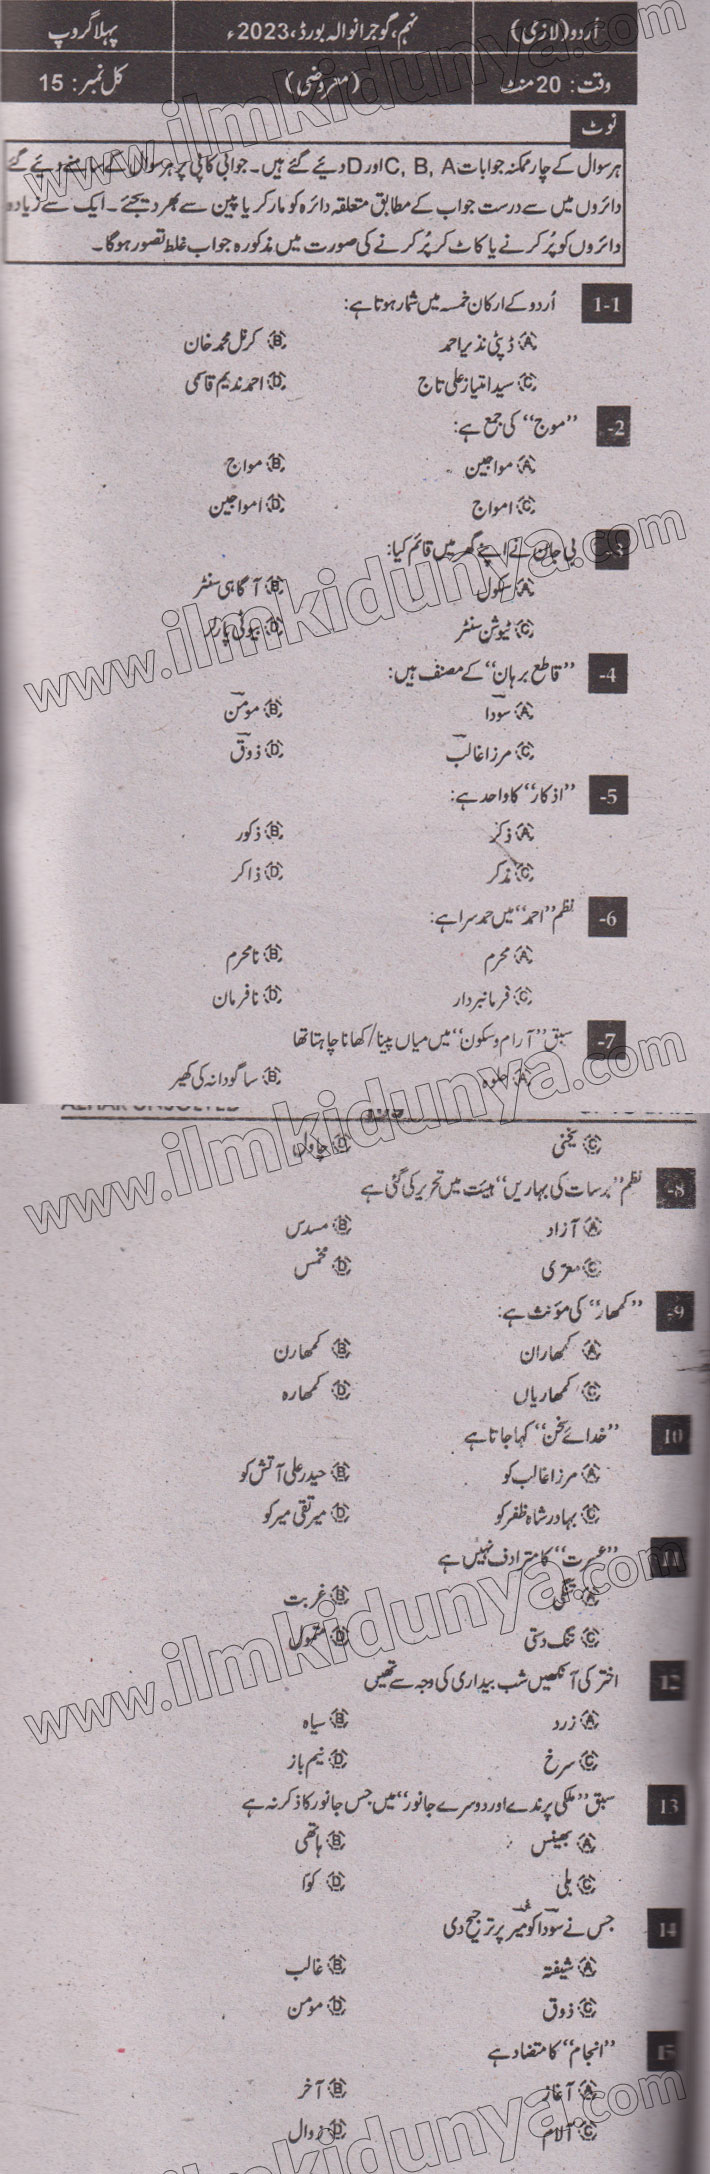 اُردو (لازمی) نہم، گوجرانوالہ بورڈ، 2023ء پہلا گروپ
وقت: 20 منٹ (معروضی) کل نمبر: 15
نوٹ
ہر سوال کے چار ممکنہ جوابات C, B, A اور D دیئے گئے ہیں۔ جوابی کاپی پر ہر سوال کے سامنے دیئے گئے
دائروں میں سے درست جواب کے مطابق متعلقہ دائرہ کو مارکر یا پین سے بھر دیجئے۔ ایک سے زیادہ
دائروں کو پُر کرنے یا کاٹ کر پُر کرنے کی صورت میں مذکورہ جواب غلط تصور ہوگا۔
1-1 اُردو کے ارکان خمسہ میں شمار ہوتا ہے:
(A) ڈپٹی نذیر احمد (B) کرنل محمد خان
(C) سید امتیاز علی تاج (D) احمد ندیم قاسمی
-2 ”موج“ کی جمع ہے:
(A) مواجین (B) مواج
(C) امواج (D) امواجین
-3 بی جان نے اپنے گھر میں قائم کیا:
(A) سکول (B) آگاہی سنٹر
(C) ٹیوشن سنٹر (D) بیوٹی پارلر
-4 ”قاطع برہان“ کے مصنف ہیں:
(A) سودا (B) مومن
(C) مرزا غالب (D) ذوق
-5 ”اذکار“ کا واحد ہے:
(A) ذکر (B) ذکور
(C) مذکر (D) ذاکر
-6 نظم ”احمد“ میں حمد سرا ہے:
(A) محرم (B) نامحرم
(C) فرمانبردار (D) نافرمان
-7 سبق ”آرام و سکون“ میں میاں پینا/کھانا چاہتا تھا
(A) حلوہ (B) ساگودانہ کی کھیر
(C) یخنی (D) چاول
-8 نظم ”برسات کی بہاریں“ ہیئت میں تحریر کی گئی ہے
(A) آزاد (B) مسدس
(C) معرّی (D) مخمس
-9 ”کمھار“ کی مؤنث ہے:
(A) کمھاران (B) کمھارن
(C) کمھاریاں (D) کمھارہ
10 ”خدائے سخن“ کہا جاتا ہے
(A) مرزا غالب کو (B) حیدر علی آتش کو
(C) بہادر شاہ ظفر کو (D) میر تقی میر کو
11 ”عسرت“ کا مترادف نہیں ہے
(A) تنگی (B) غربت
(C) تنگ دستی (D) متمول
12 اختر کی آنکھیں شب بیداری کی وجہ سے تھیں
(A) زرد (B) سیاہ
(C) سرخ (D) نیم باز
13 سبق ”ملکی پرندے اور دوسرے جانور“ میں جس جانور کا ذکر نہ ہے
(A) بھینس (B) ہاتھی
(C) بلی (D) کوّا
14 جس نے سودا کو میر پر ترجیح دی
(A) شیفتہ (B) غالب
(C) ذوق (D) مومن
15 ”انجام“ کا متضاد ہے
(A) آغاز (B) آخر
(C) آلام (D) زوال
www.ilmkidunya.com
www.ilmkidunya.com
www.ilmkidunya.com
www.ilmkidunya.com
www.ilmkidunya.com